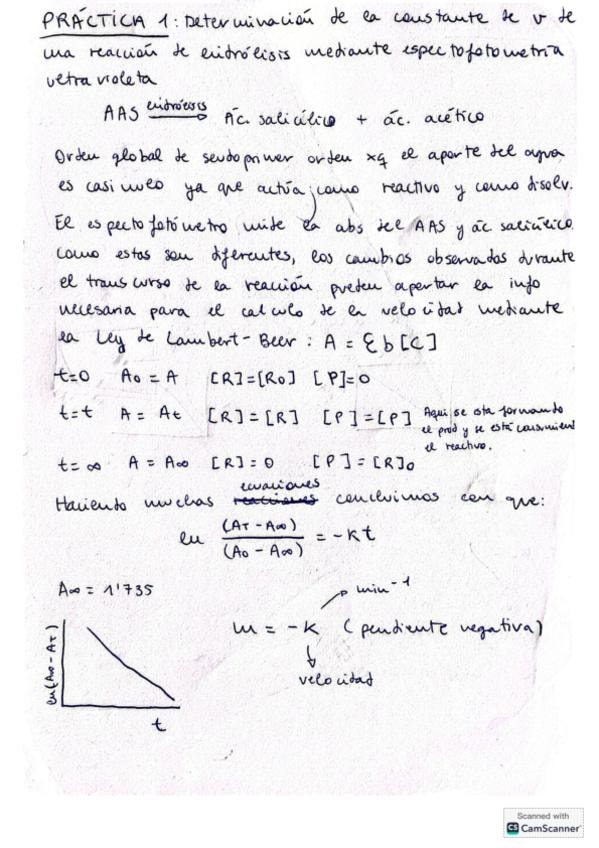 PRÁCTICA 1: Determinación de la constante de v de
una reacción de hidrólisis mediante espectofotometría
ultravioleta
AAS hidrólisis → Ác. salicílico + ác. acético
Orden global de seudoprimer orden xq el aporte del agua
es casi nulo ya que actúa como reactivo y como disolv.
El espectofotómetro mide la abs del AAS y ác salicílico.
Como estas son diferentes, los cambios observados durante
el transcurso de la reacción pueden aportar la info
necesaria para el calculo de la velocidad mediante
la Ley de Lambert-Beer: A = Ɛ b [C]
t=0 A₀ = A [R]=[R₀] [P]=0
t=t A = At [R]=[R] [P]=[P] Aqui se esta formando
el prod y se está consumiend
el reactivo.
t=∞ A = A∞ [R]=0 [P]=[R]₀
ecuaciones
Haciendo muchas reacciones concluimos con que:
ln (AT - A∞) / (A₀ - A∞) = -kt
A∞ = 1'735
min⁻¹
m = -k (pendiente negativa)
velocidad
ln(A∞ - AT)
t
Scanned with
CS CamScanner